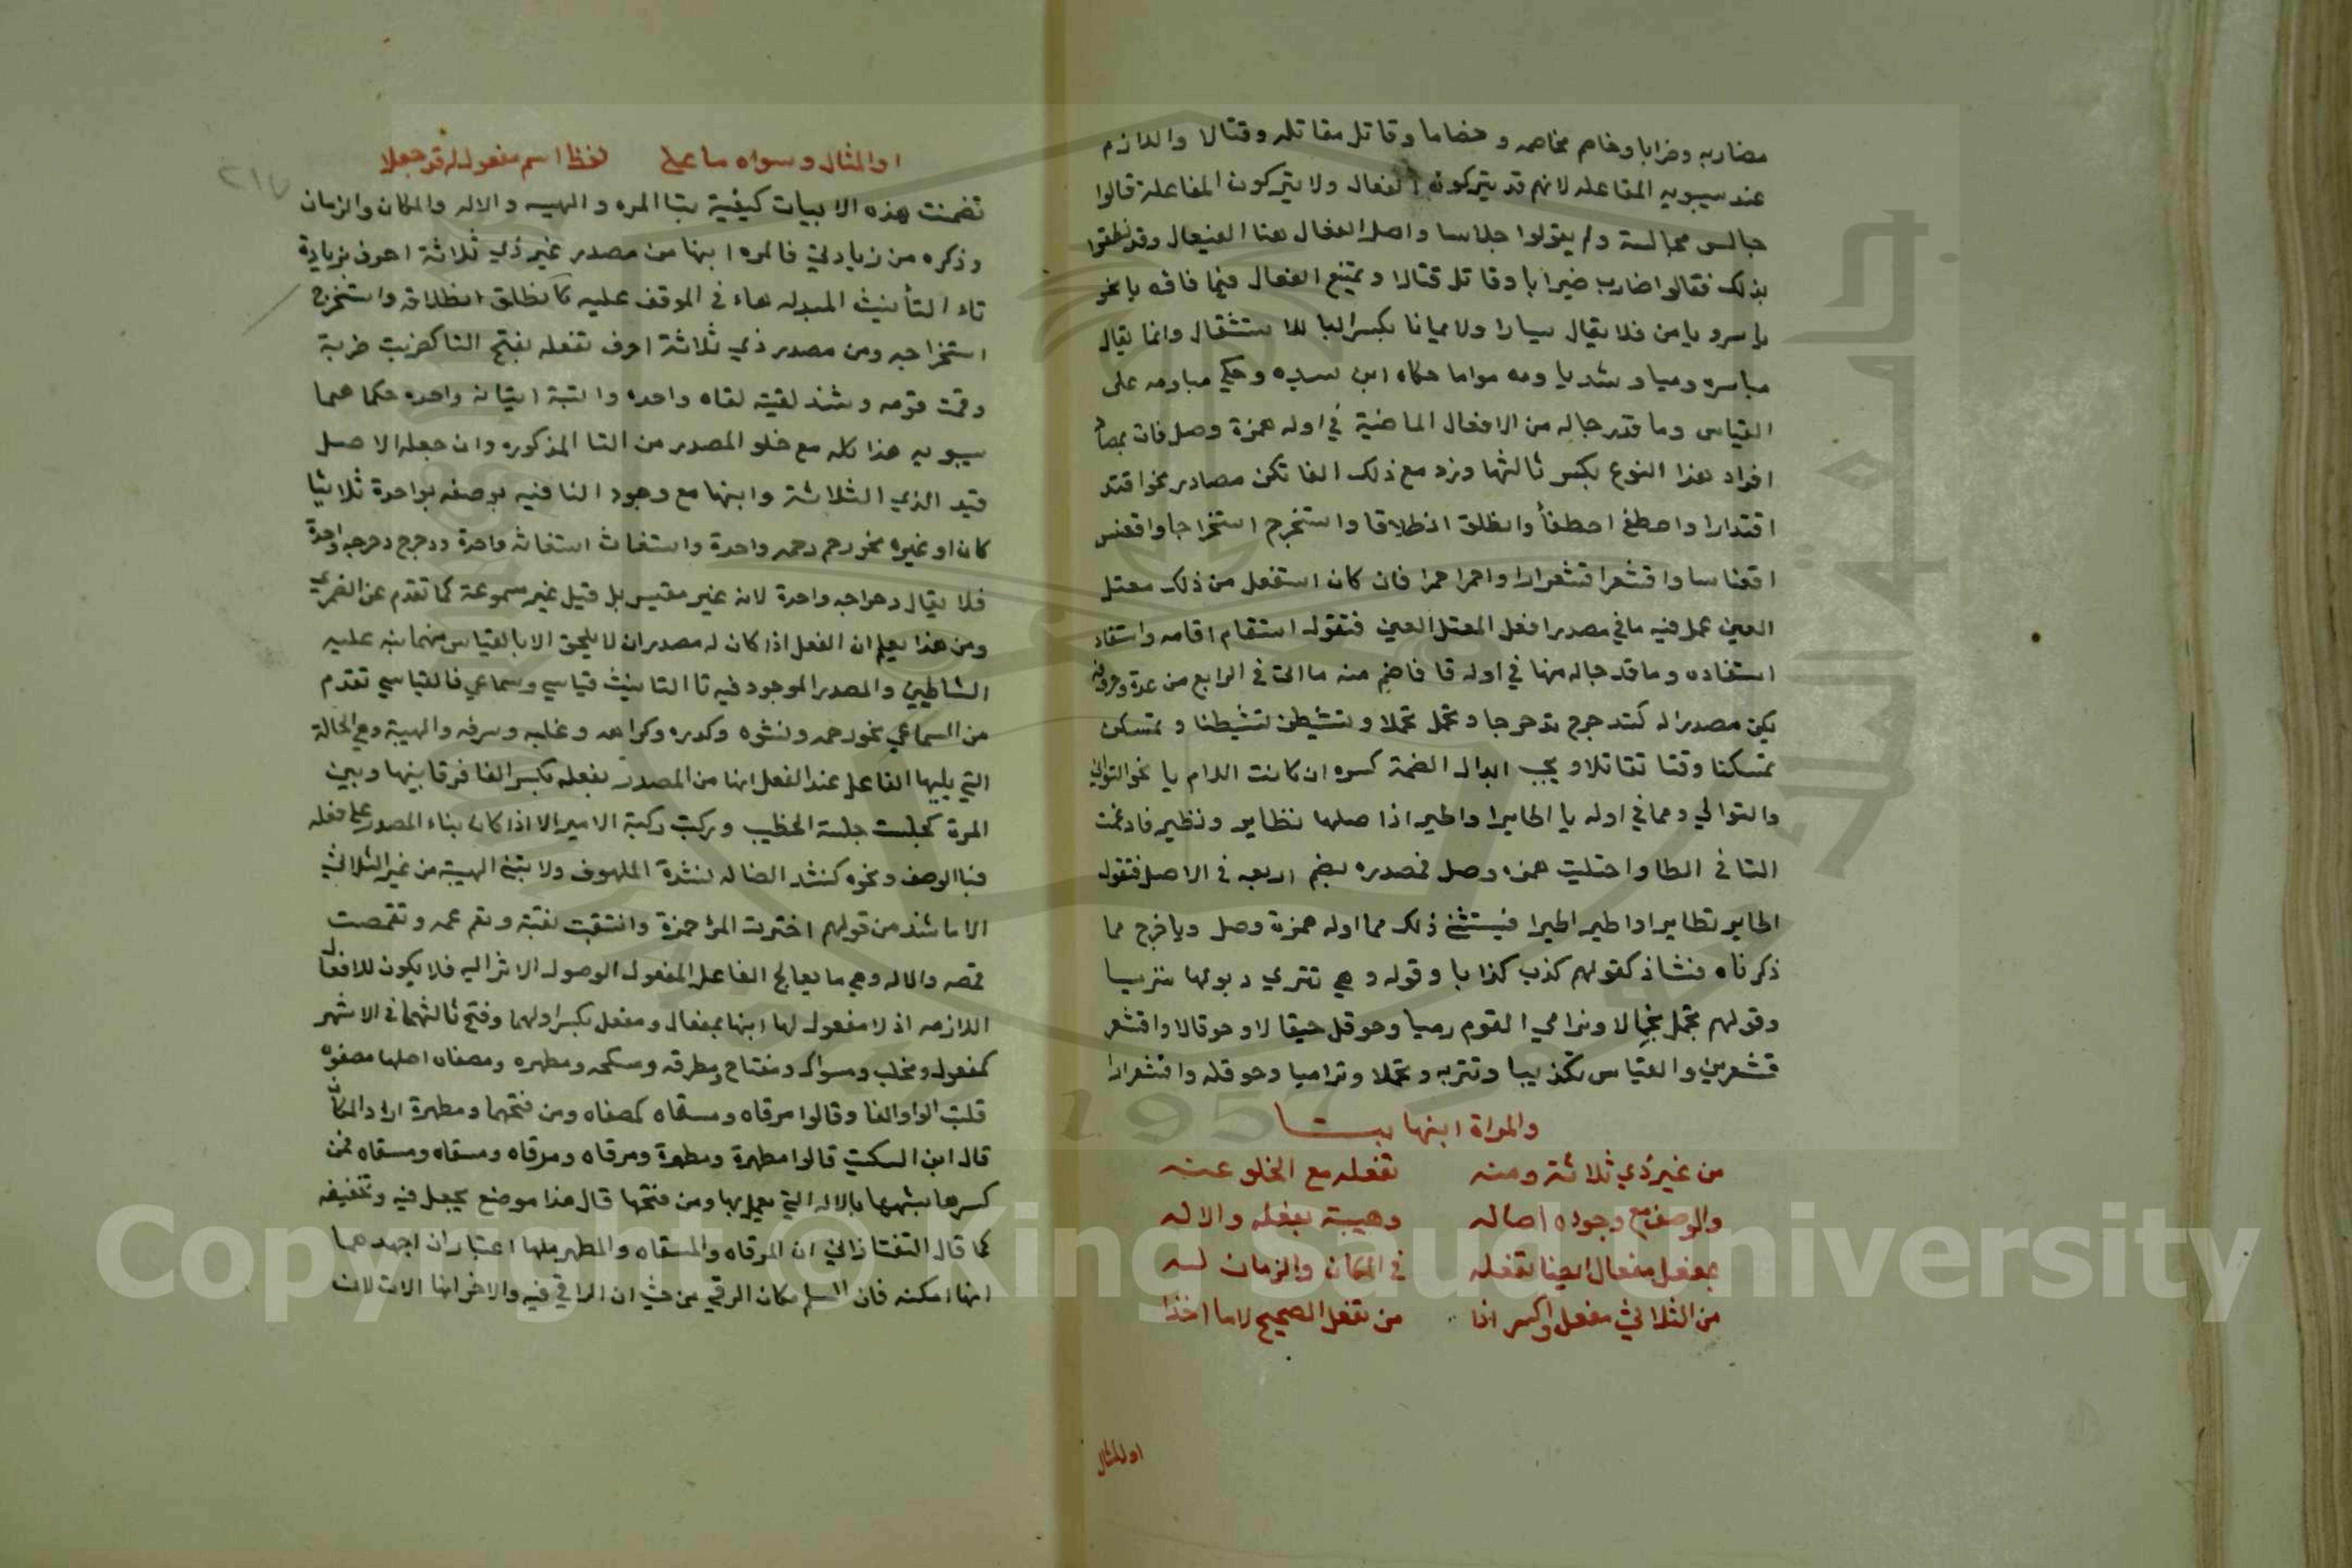 مضاربه وضرابا وخاصم مخاصمه وخصاما وقاتل مقاتله وقتالا واللازم
عند سيبويه المفاعله لانهم قد يتركون الفعال ولا يتركون المفاعلة قالوا
جالس مجالسة ولم يقولوا جلاسا واصل الفعال هنا الفيعال وقد نطقوا
بذلك فقالوا ضارب ضيرابا وقاتل قتالا ويمتنع الفعال فيما فاؤه يا نحو
ياسر ويامن فلا يقال يسارا ولا يمانا بكسر اليا للاستثقال وانما يقال
مياسره وشذ ياومه مواما حكاه ابن سيده وحكي مياومه على
القياس وما قدر حاله من الافعال الماضية في اوله همزة وصل فات بمصادر
افراد هذا النوع بكسر ثالثها وزد مع ذلك الفا تكن مصادر نحو اقتدر
اقتدارا واصطفى اصطفأ وانطلق انطلاقا واستخرج استخراجا واقعنس
اقعنساسا واقشعر اقشعرارا واحمر احمرا فان كان استفعل من ذلك معتل
العين عمل فيه ما في مصدر افعل المعتل العين فتقول استقام اقامه واستفاد
استفاده وما قد حاله منها في اوله تا فاضم منه ما اتى في الرابع من عدة حروفه
يكن مصدرا له كتدحرج تدحرجا وتحمل تحملا وتشيطن تشيطنا وتمسكن
تمسكنا وتقاتلا ويجب ابدال الضمة كسره ان كانت اللام يا نحو التواني
والتوالي ومما في اوله يا اطايرا واطير اذا صلها تطاير وتطير فادغمت
التا في الطا واجتلبت همزه وصل فمصدره بضم اربعه في الاصل فتقول
اطاير تطايرا واطير اطيرا فيستثنى ذلك مما اوله همزة وصل وياخرج مما
ذكرناه فشاذ كقولهم كذب كذابا وقوله وهي تنزي دلوها تنزيا
وقولهم تحمل تحمالا وترامي القوم رميا وحوقل حيقالا وحوقالا واقشعر
قشعريره والقياس تكذيبا وتنزيه وتحملا وتراميا وحوقله واقشعرارا
والمراة ابنها بتا
من غير ذي ثلاثة ومنه تفعله مع الخلو عنه
والوصف مع وجوده اصاله وهيبة بفعله والاله
بمفعل مفعال ايضا مفعله في المكان والزمان له
من الثلاثي مفعل واكسر اذا من تفعل الصحيح لاما اخذا
او المثال
او المثال وسواه ما على لفظ اسم مفعول له قد جعلا
تضمنت هذه الابيات كيفية بنا المره والهيه والاله والمكان والزمان
وذكره من زيادتي فالمره ابنها من مصدر غير ذي ثلاثة احرف بزيادة
تاء التأنيث المبدله هاء في الوقف عليه كانطلق انطلاقه واستخرج
استخراجه ومن مصدر ذي ثلاثة احرف تفعله بفتح التا كضربت ضربة
وقمت قومه وشذ لقيته لقاه واحده واتيته اتيانه واحده حكاهما
سيبويه هذا كله مع خلو المصدر من التا المذكوره وان جعله الاصل
قيد الذي الثلاثة وابنها مع وجود التا فيه بوصفه بواحدة ثلاثيا
كان او غيره نحو رحم رحمه واحدة واستغاث استغاثه واحدة ودحرج دحرجه واحدة
فلا يقال دحراجه واحدة لانه غير مقيس بل قيل غير مسموعة كما تقدم عن الضمري
ومن هذا يعلم ان الفعل اذا كان له مصدران لا يلحق الا بالقياس منهما نبه عليه
الشاطبي والمصدر الموجود فيه تا التانيث قياسي وسماعي فالقياسي تقدم
من السماعي نحو رحمه ونشوه وكدره وكراهه وغلبه وسرقه والهيبة وهي الحالة
التي يليها الفاعل عند الفعل ابنها من المصدر بفعله بكسر الفا فرقا بينها وبين
المرة كجلست جلسة الخطيب وركبت ركبة الامير الا اذا كان بناء المصدر على فعله
فبالوصف ونحوه كنشد الضاله نشدة الملهوف ولا تبنى الهيبة من غير الثلاثي
الا ما شذ من قولهم اختمرت المرأة خمرة وانتقبت نقبة وتعمم عمه وتقمصت
قمصه والاله وهي ما يعالج الفاعل المفعول لوصول الاثر اليه فلا يكون للافعال
اللازمه اذ لا مفعول لها ابنها بمفعال ومفعل بكسر اولهما وفتح ثالثهما في الاشهر
كمفعول ومخلب ومسواك ومفتاح ومطرقه ومكسحه ومطهره ومصفاه اصلها مصفوه
قلبت الواو الفا وقالوا مرقاه ومسقاه كمصفاه ومن فتحهما ومطهرة اراد المكان
قال ابن السكيت قالوا مطهرة ومطهرة ومرقاه ومرقاه ومسقاه ومسقاه فمن
كسرها شبهها بالاله التي يعمل بها ومن فتحها قال هذا موضع يجعل فيه وتحقيقه
كما قال التفتازاني ان المرقاه والمسقاه والمطهر لها اعتباران احدهما
انها امكنه فان السلم مكان الرقي من حيث ان الراقي فيه والاخر انها الات لان
٢١٧
Copyright © King Saud University
1957